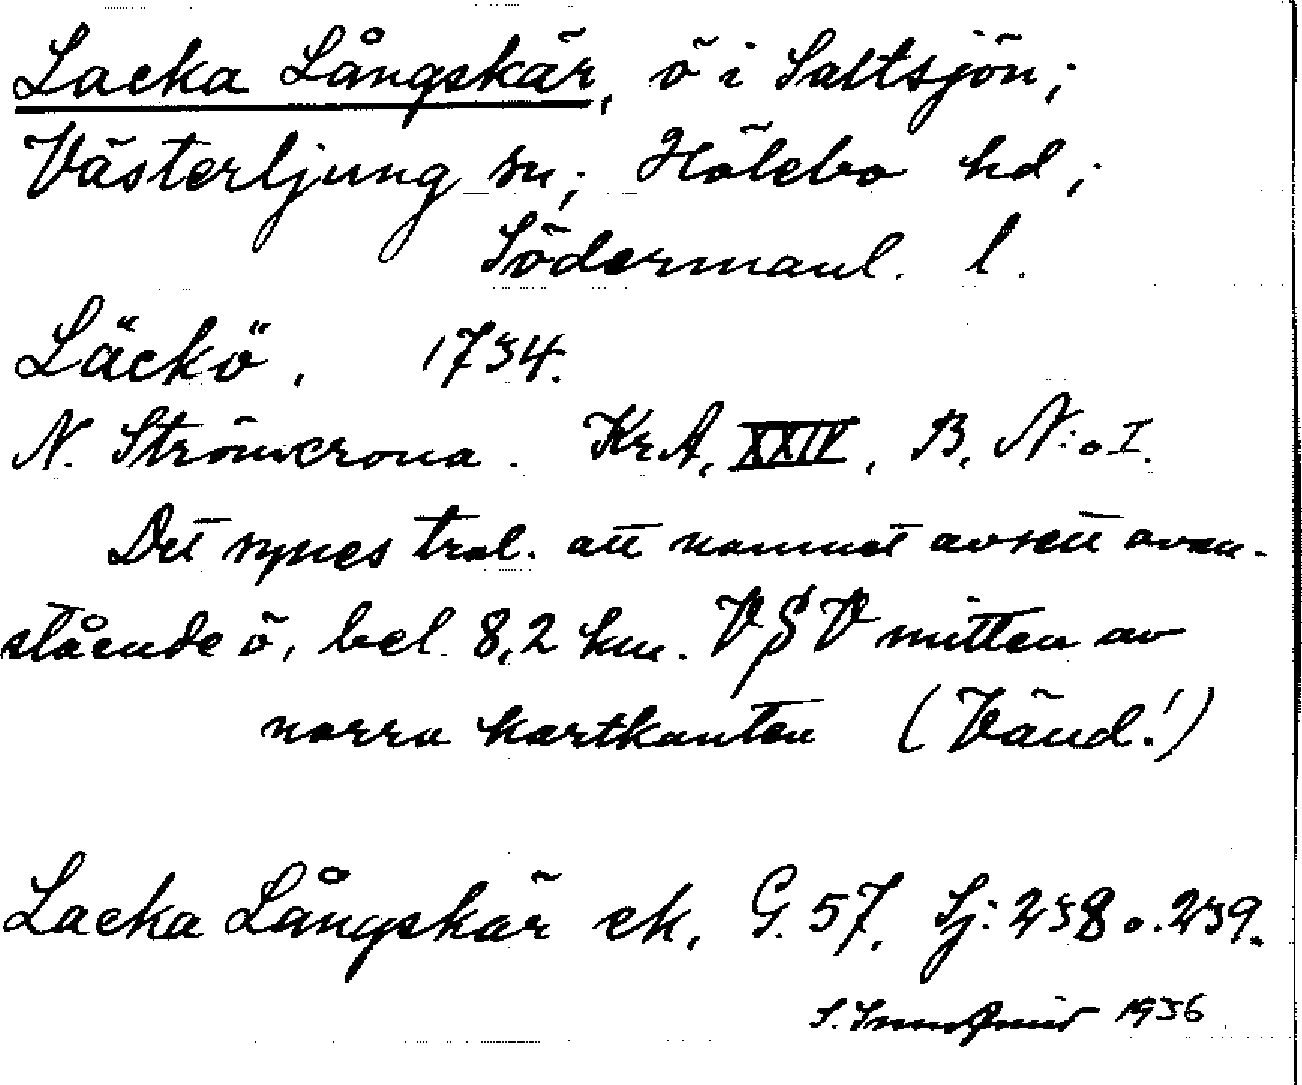 Lacka Långskär, ö i Saltsjön;
Västerljung sn; Hölebo hd;
Södermanl. l.
Läckö. 1734.
N. Strömcrona. Kr.A, XXIV, B, N:o I.
Det synes trol. att namnet avsett ovan-
stående ö, bel. 8,2 km. V§V mitten av
norra kartkanten (Vänd!)
Lacka Långskär ek. G. 57. Sj: 238 o. 239.
S. 1936